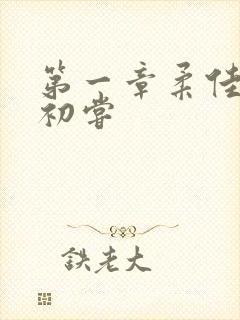 第一章柔佳
初嘗
鉄老大